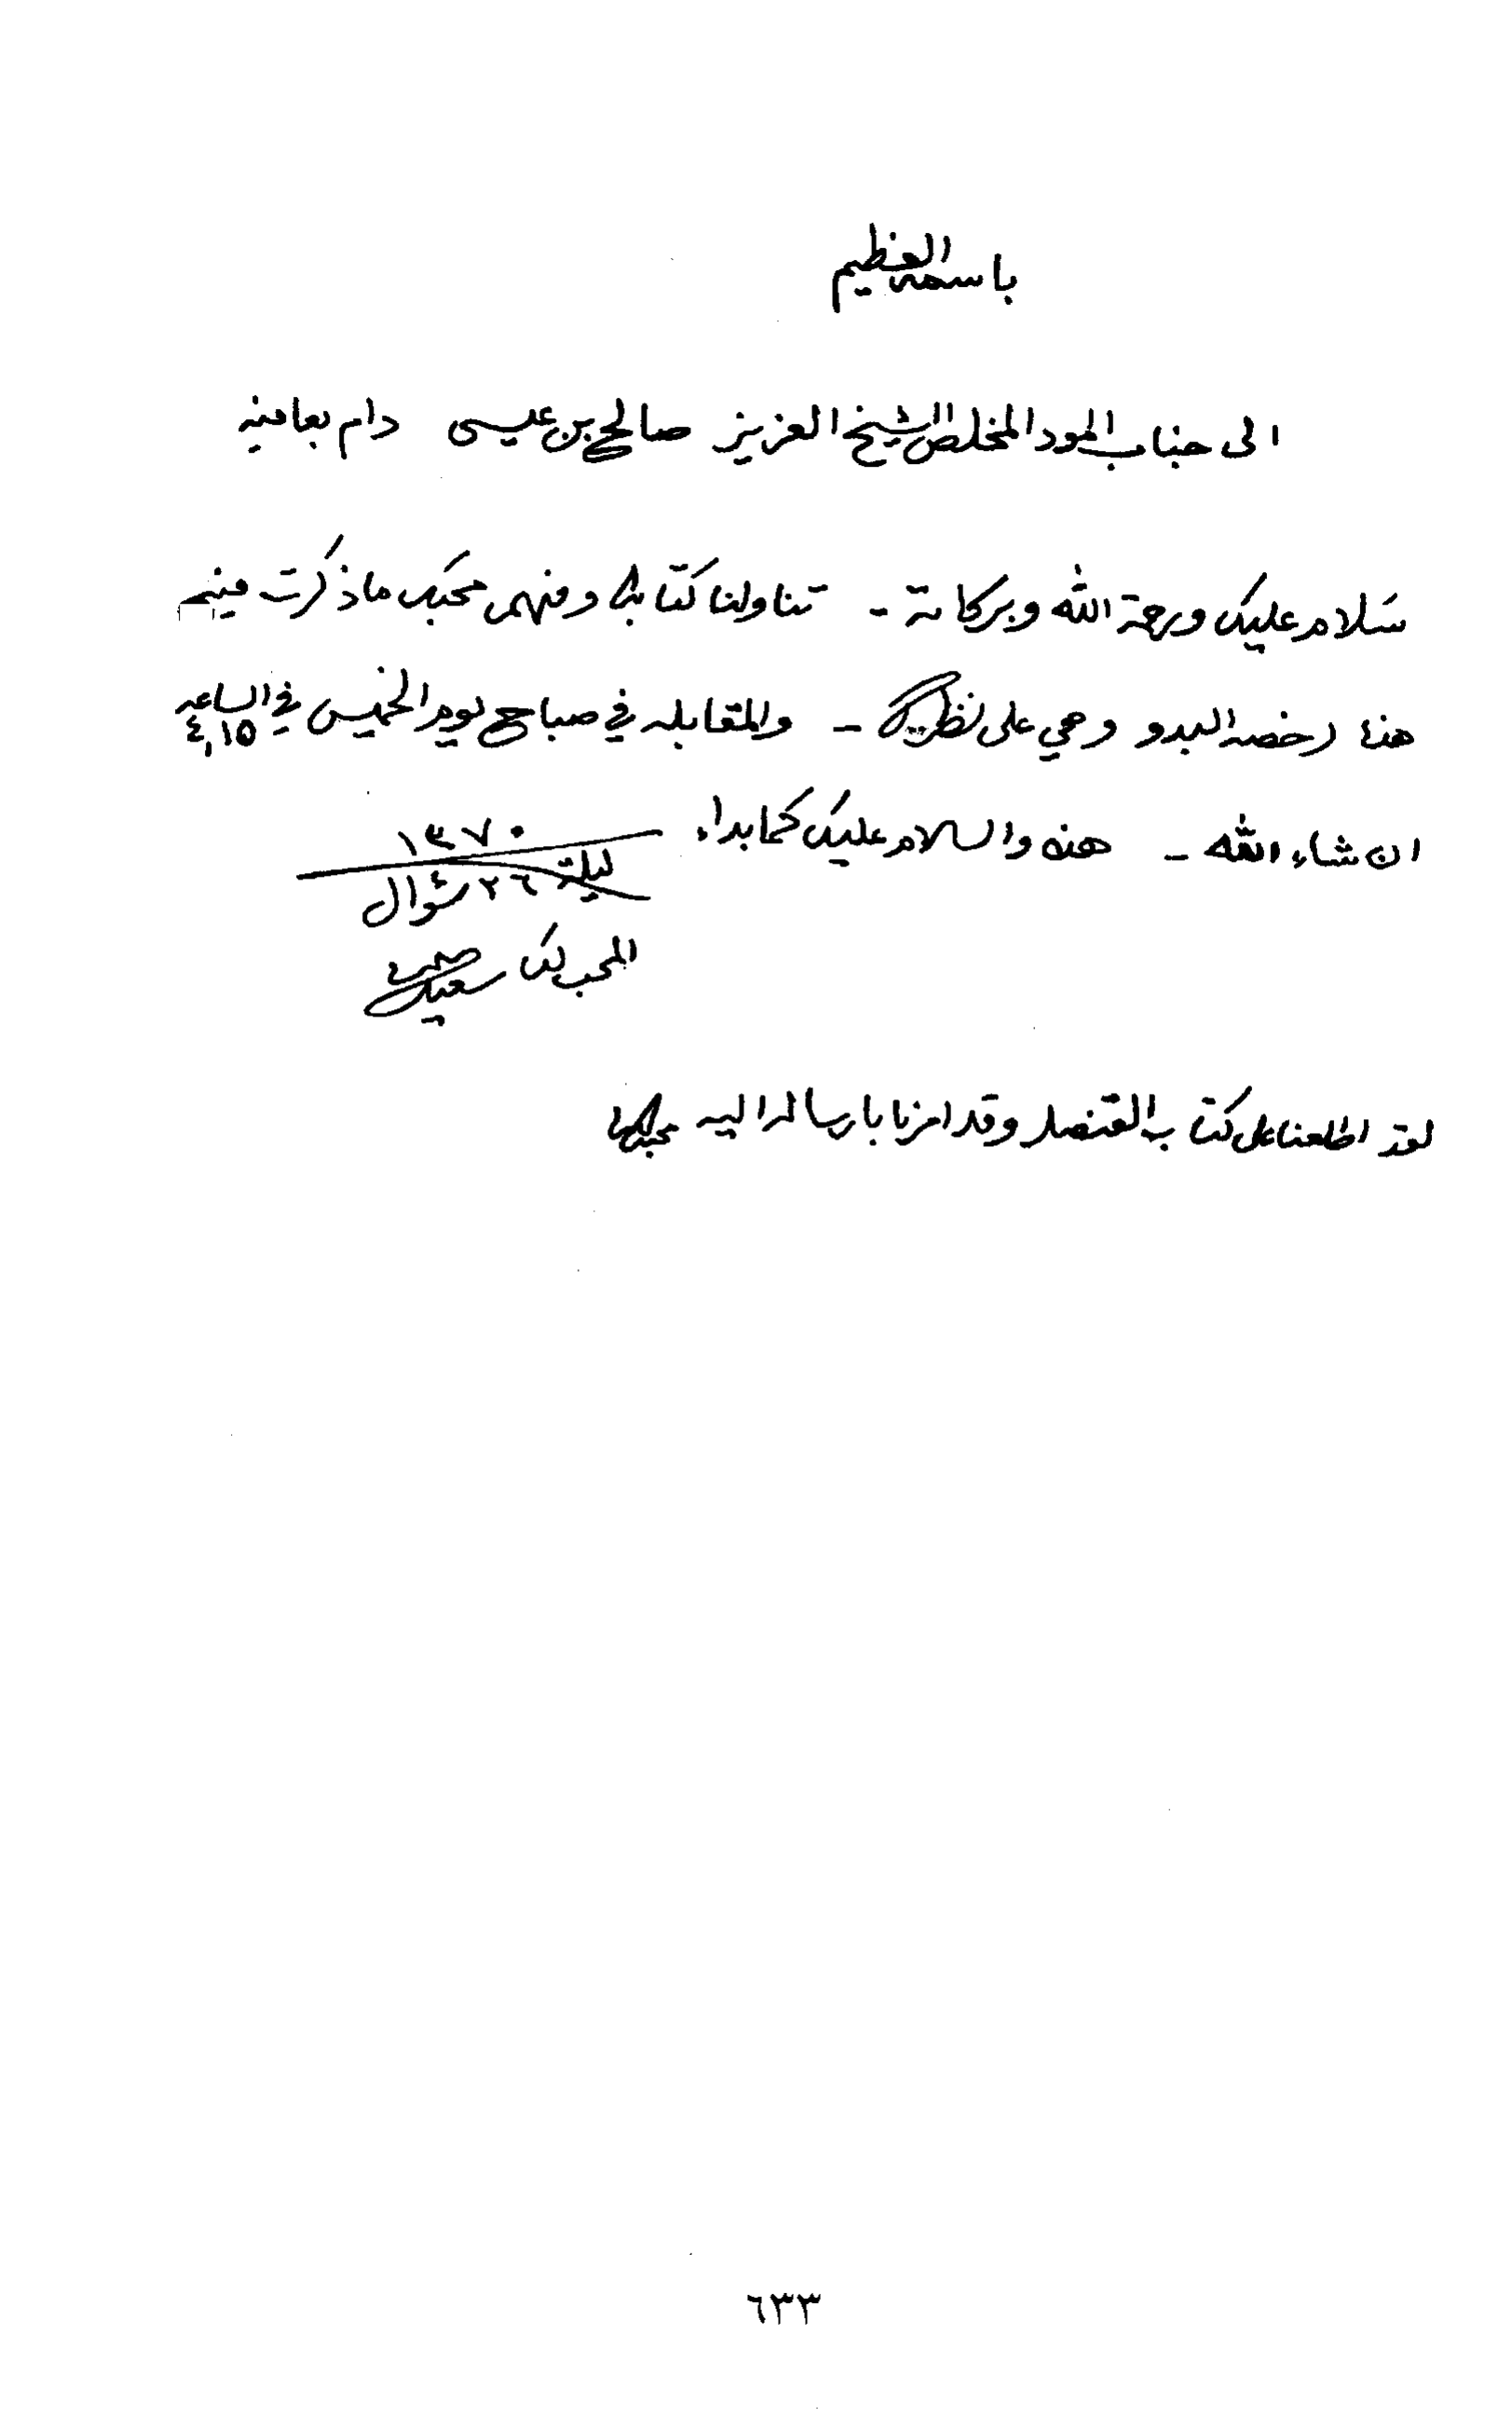 باسمه العظيم
الى جناب المود المخلص الشيخ العزيز صالح بن عيسى دام بعافيه
سلام عليك ورحمة الله وبركاته - تناولنا كتابك وفهم محبك ما ذكرت فيه
هذا رخصه البدو وهي على نظرك - والمقابله في صباح يوم الخميس في الساعه ٤,١٥
ان شاء الله - هذه والسلام عليك كما بداء
١٣٧٠
ليلة ٢٦ شوال
المحب لك سعيد
لقد اطلعنا على كتاب القنصل وقد امرنا بارساله اليه
٦٣٣